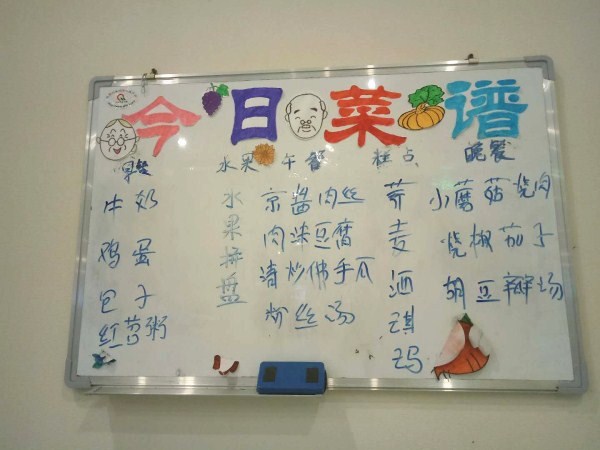 今日菜谱
早餐
牛奶
鸡蛋
包子
红苕粥
水果
水果拼盘
午餐
京酱肉丝
肉沫豆腐
清炒佛手瓜
粉丝汤
糕点
荞麦洒琪玛
晚餐
小蘑菇烧肉
烧椒茄子
胡豆瓣汤